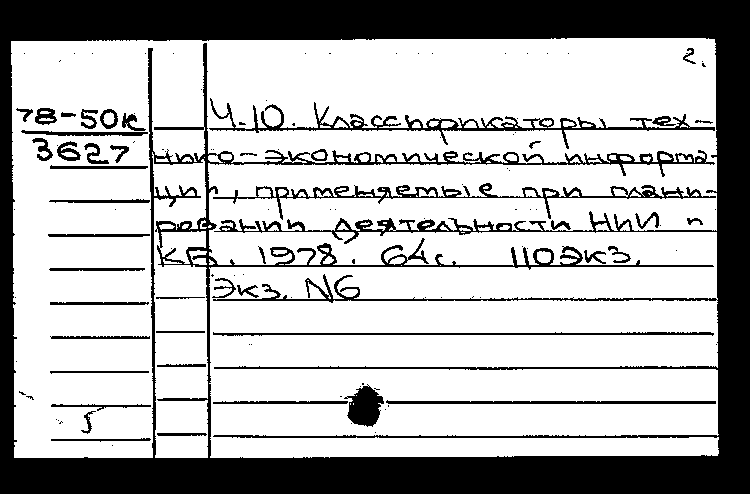 2.
78-50к
3627
Ч.10. Классификаторы тех-
нико-экономической информа-
ции, применяемые при плани-
ровании деятельности НИИ и
КБ. 1978. 64с. 110экз.
Экз. N6
5